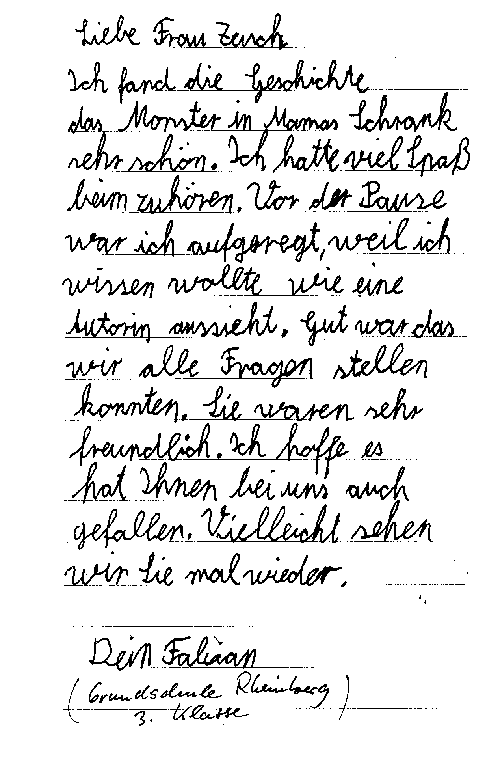 Liebe Frau Zesch
Ich fand die Geschichte
das Monster in Mamas Schrank
sehr schön. Ich hatte viel Spaß
beim zuhören. Vor der Pause
war ich aufgeregt, weil ich
wissen wollte wie eine
Autorin aussieht. Gut war das
wir alle Fragen stellen
konnten. Sie waren sehr
freundlich. Ich hoffe es
hat Ihnen bei uns auch
gefallen. Vielleicht sehen
wir Sie mal wieder.
Dein Fabian
(Grundschule Rheinberg)
3. Klasse